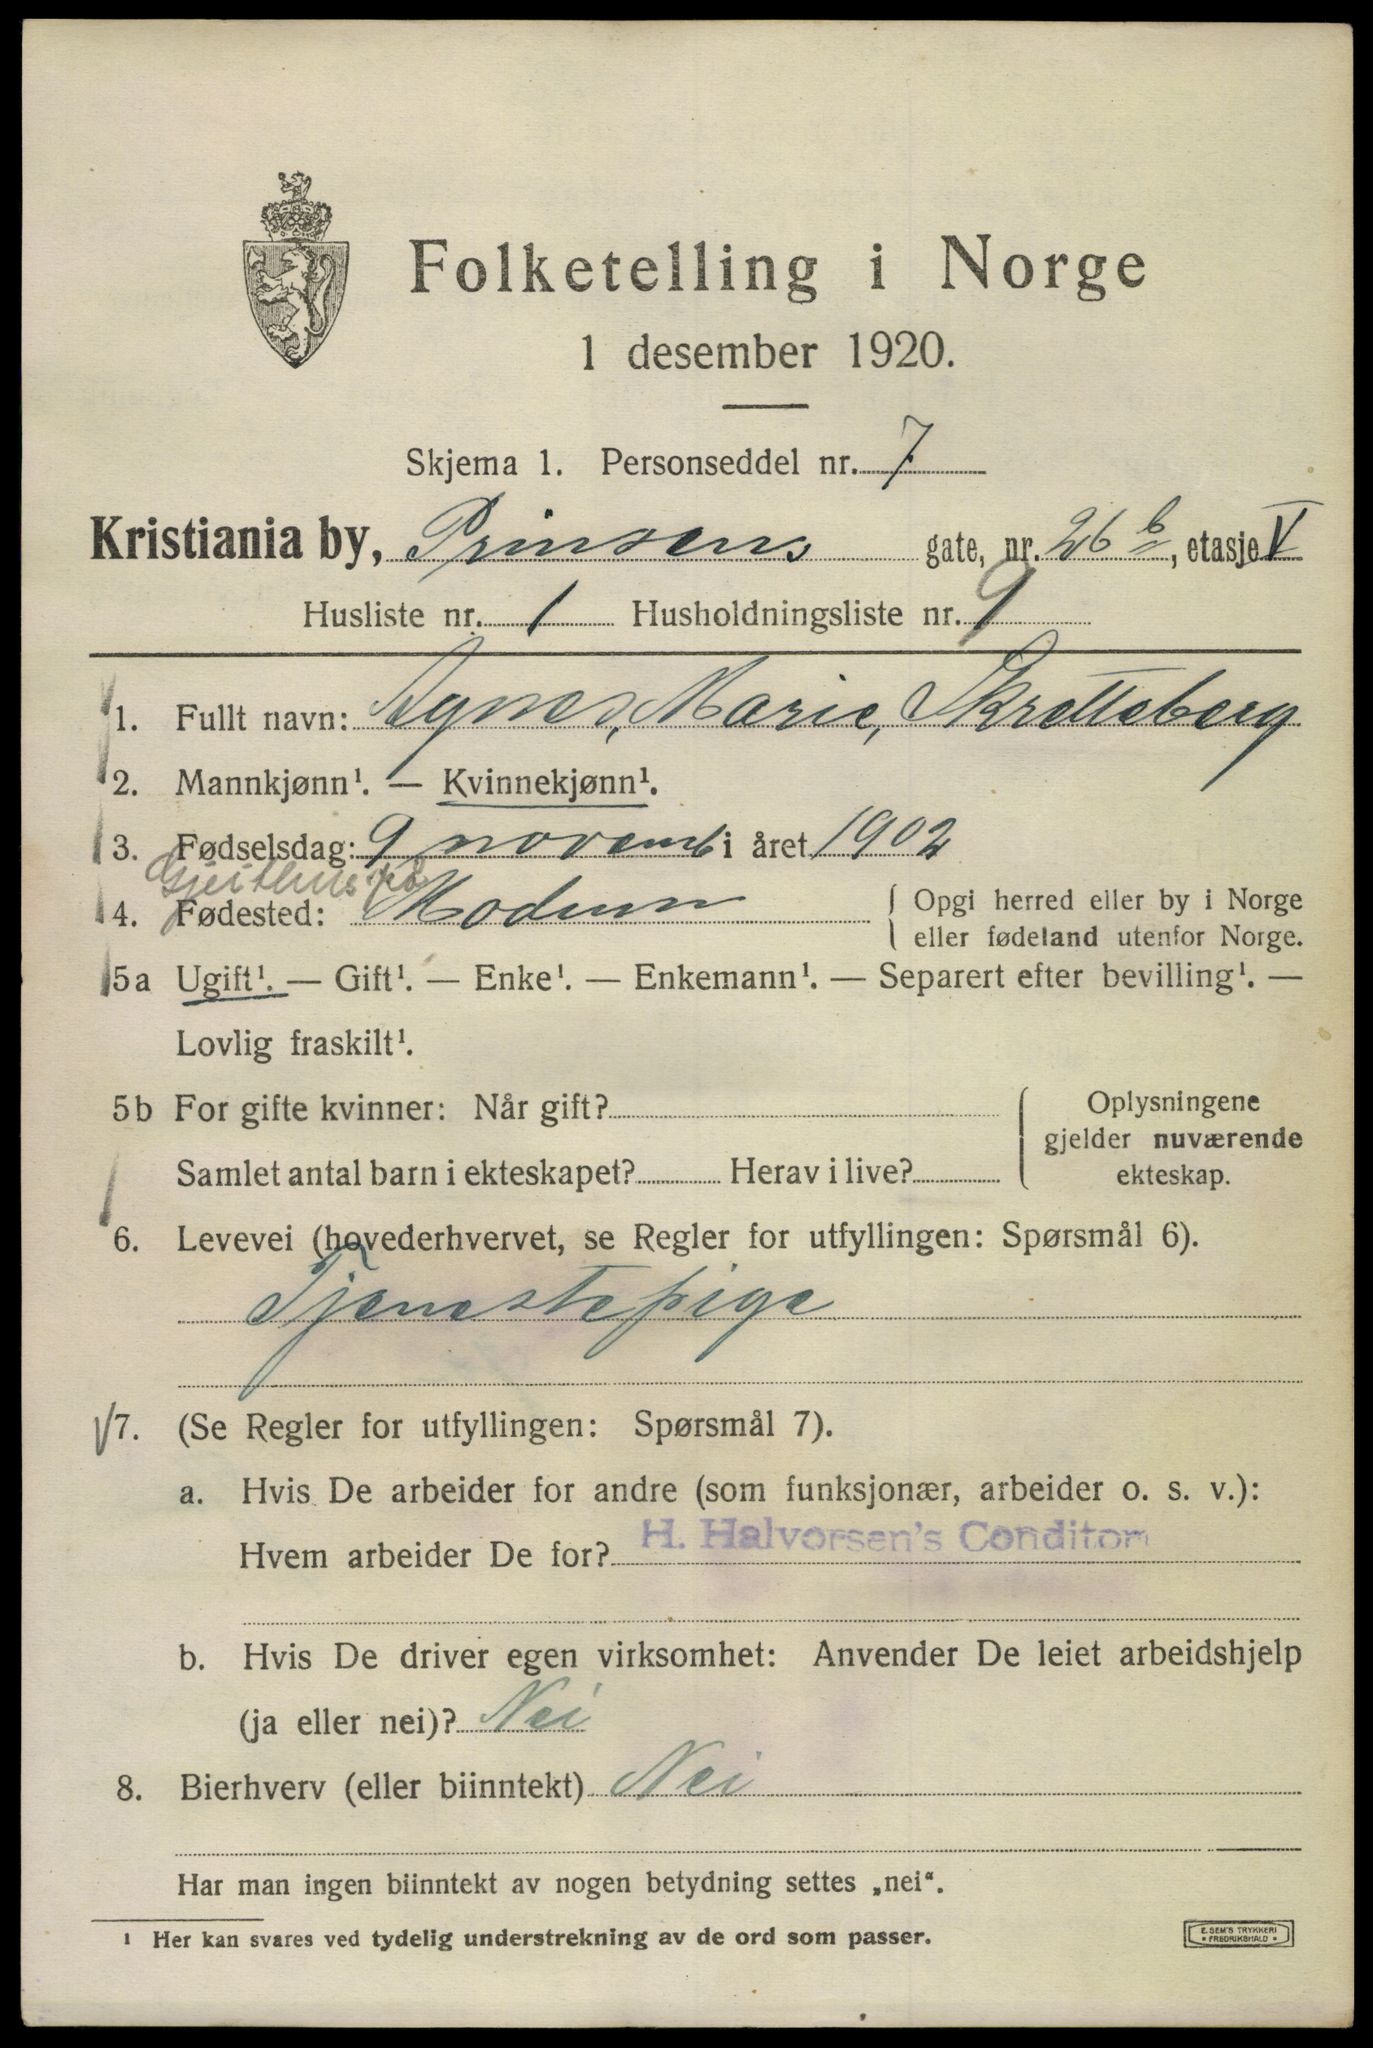 Folketelling i Norge
1 desember 1920.
Skjema 1. Personseddel nr. 7
Kristiania by, Prinsens gate, nr. 26 b, etasje V
Husliste nr. 1 Husholdningsliste nr. 9
1. Fullt navn: Agnes, Marie, Skretteberg
2. Mannkjønn¹. — Kvinnekjønn¹.
3. Fødselsdag: 9 novemb i året 1902
Gjeithus på
4. Fødested: Modum { Opgi herred eller by i Norge
eller fødeland utenfor Norge.
5a Ugift¹. — Gift¹. — Enke¹. — Enkemann¹. — Separert efter bevilling¹. —
Lovlig fraskilt¹.
5b For gifte kvinner: Når gift? { Oplysningene
gjelder nuværende
Samlet antal barn i ekteskapet? Herav i live? ekteskap.
6. Levevei (hovederhvervet, se Regler for utfyllingen: Spørsmål 6).
Tjenestepige
7. (Se Regler for utfyllingen: Spørsmål 7).
a. Hvis De arbeider for andre (som funksjonær, arbeider o. s. v.):
Hvem arbeider De for? H. Halvorsen's Conditori
b. Hvis De driver egen virksomhet: Anvender De leiet arbeidshjelp
(ja eller nei)? Nei
8. Bierhverv (eller biinntekt) Nei
Har man ingen biinntekt av nogen betydning settes „nei“.
¹ Her kan svares ved tydelig understrekning av de ord som passer.
E. SEM'S TRYKKERI
• FREDRIKSHALD •